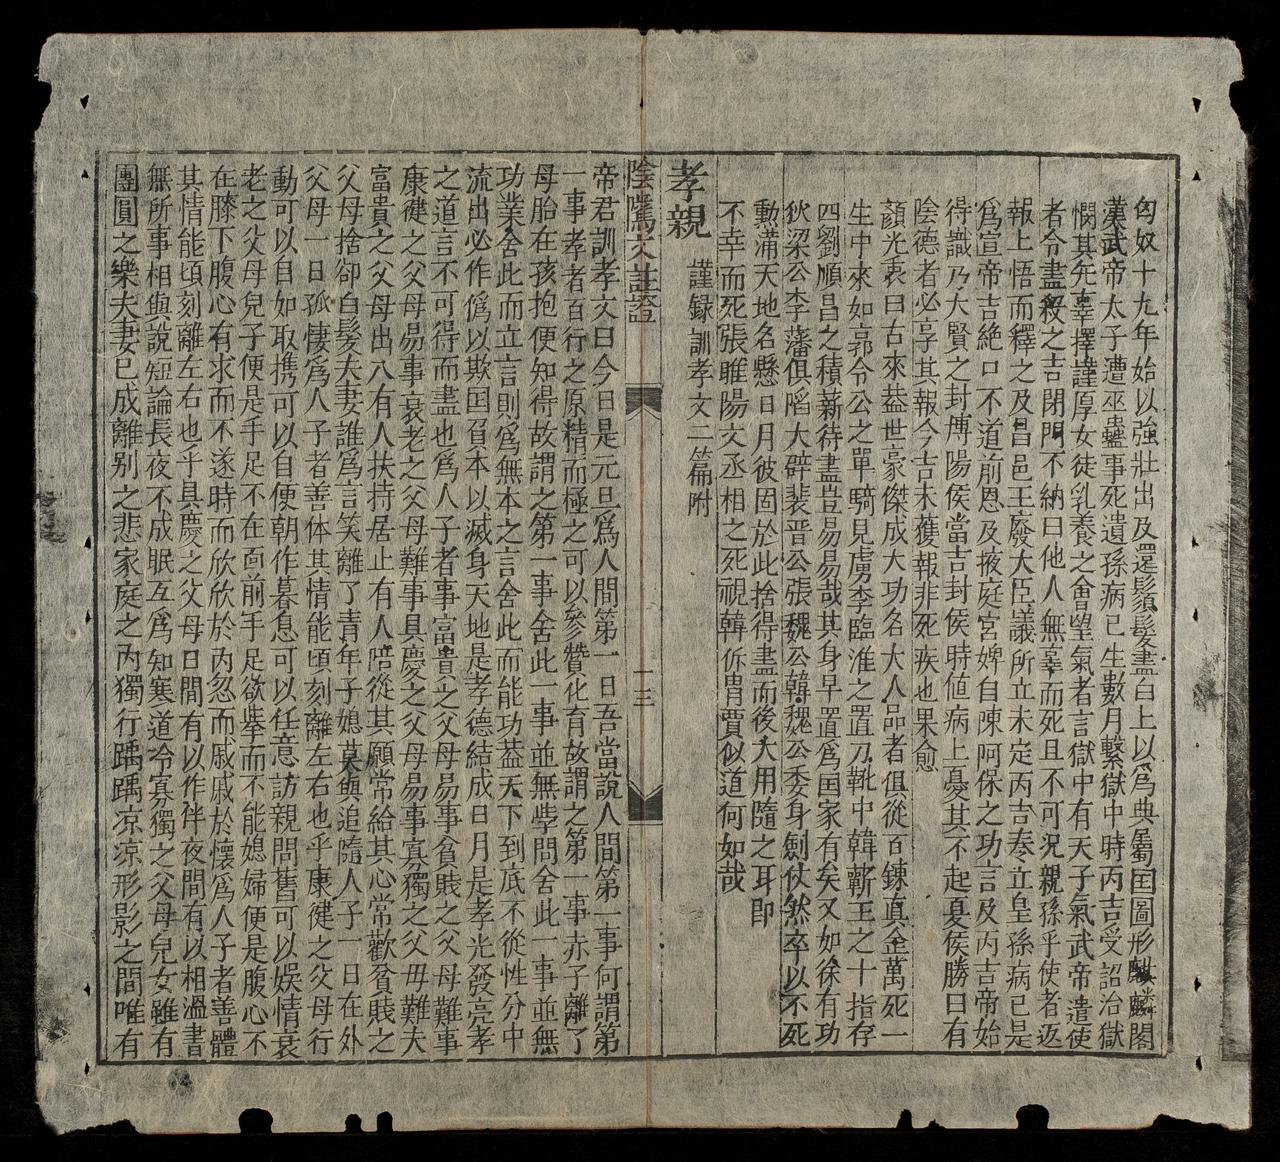 匈奴十九年始以強壯出及還鬚髮盡白上以爲典屬囯圖形麒麟閣
漢武帝太子遭巫蠱事死遺孫病已生數月繫獄中時丙吉受詔治獄
憫其先辜擇謹厚女徒乳養之會望氣者言獄中有天子氣武帝遣使
者令盡殺之吉閉門不納曰他人無辜而死且不可況親孫乎使者返
報上悟而釋之及昌邑王廢大臣議所立未定丙吉奏立皇孫病已是
爲宣帝吉絶口不道前恩及掖庭宮婢自陳呵保之功言及丙吉帝始
得識乃大賢之封博陽侯當吉封侯時値病上憂其不起夏侯勝曰有
陰德者必享其報今吉未獲報非死疾也果愈
顔光衷曰古來葢世豪傑成大功名大人品者俱從百鍊真金萬死一
生中來如郭令公之單騎見虜李臨淮之置刀靴中韓蘄王之十指存
四劉順昌之積薪待盡豈易易哉其身早置爲囯家有矣又如徐有功
狄梁公李藩俱陷大辟裴晋公張魏公韓魏公委身劍仗然卒以不死
勳滿天地名懸日月彼固於此捨得盡而後大用隨之耳即
不幸而死張睢陽文丞相之死視韓侂胄賈似道何如哉
孝親　謹録訓孝文二篇附
陰隲文註證　十三
帝君訓孝文曰今日是元旦爲人間第一日吾當說人間第一事何謂第
一事孝者百行之原精而極之可以參贊化育故謂之第一事赤子離了
母胎在孩抱便知得故謂之第一事舍此一事並無學問舍此一事並無
功業舍此而立言則爲無本之言舍此而能功葢天下到底不從性分中
流出必作僞以欺囯負本以滅身天地是孝德結成日月是孝光發亮孝
之道言不可得而盡也爲人子者事富貴之父母易事貧賤之父母難事
康健之父母易事衰老之父母難事具慶之父母易事寡獨之父毋難夫
富貴之父母出入有人扶持居止有人陪從其願常給其心常歡貧賤之
父母捨卻白髮夫妻誰爲言笑離了青年子媳莫與追隨人子一日在外
父母一日孤悽爲人子者善体其情能頃刻離左右也乎康健之父母行
動可以自如取携可以自便朝作暮息可以任意訪親問舊可以娯情衰
老之父母兒子便是手足不在面前手足欲擧而不能媳婦便是腹心不
在膝下腹心有求而不遂時而欣欣於內忽而戚戚於懷爲人子者善體
其情能頃刻離左右也乎具慶之父母日間有以作伴夜間有以相溫書
無所事相與說短論長夜不成眠互爲知寒道令寡獨之父母兒女雖有
團圓之樂夫妻已成離别之悲家庭之內獨行踽踽凉凉形影之間唯有